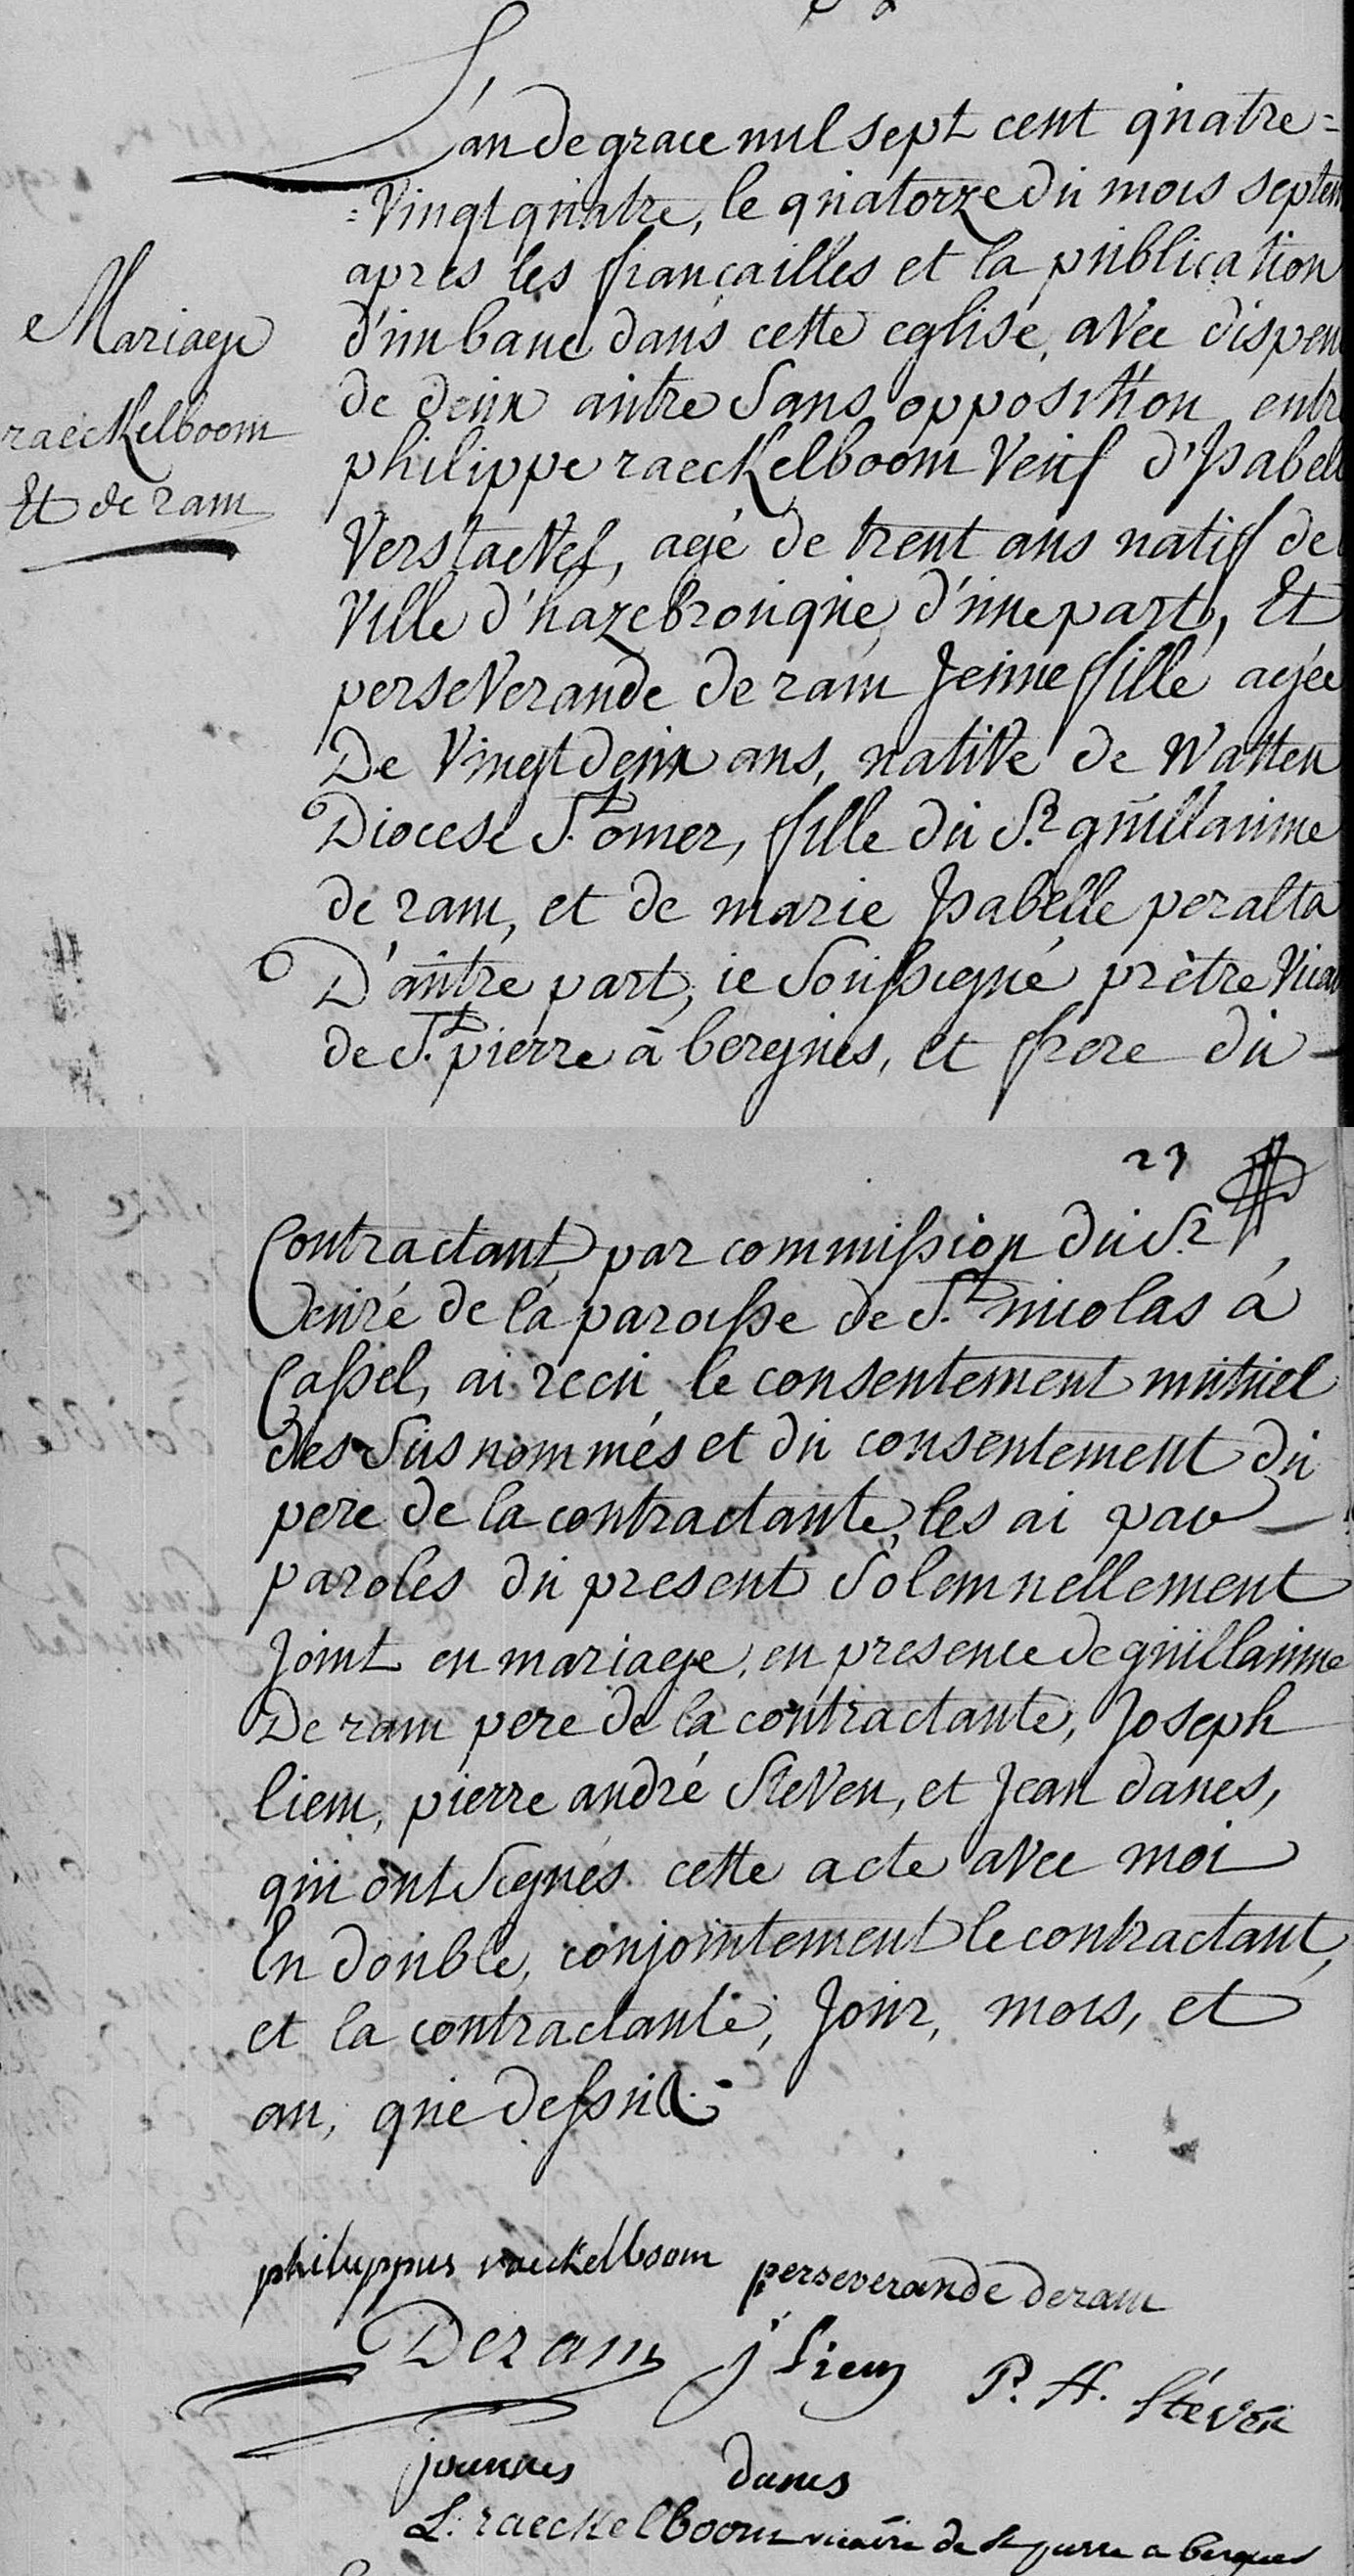 L'an de grace mil sept cent quatre=
=Vingt quatre, le quatorze du mois septem
apres les fiançailles et la publication
d'un banc dans cette eglise, avec dispen
Mariage
de deux autre sans opposition entre
raeckelboom
philippe raeckelboom Veuf d'Isabell
Et de ram
Verstavel, agé de trent ans natif de
Ville d'hazebrouque d'une part, Et
perseverande de ram Jeune fille agée
De Vingt deux ans, native de Watten
Diocese St. omer, fille du Sr. guillaume
de ram, et de marie Isabelle peralta
D'autre part, ie soussigné prètre Vicai
de St. pierre à bergues, et frere du
23
Contractant par commission du Sr.
Curé de la paroisse de St. nicolas à
Cassel, ai recu le consentement mutuel
des sus nommés et du consentement du
pere de la contractante, les ai par
paroles du present solemnellement
Joint en mariage, en presence de guillaume
De ram pere de la contractante, Joseph
liem, pierre andré Steven, et Jean danes,
qui ont signés cette acte avec moi
En double, conjointement le contractant,
et la contractante, Jour, mois, et
an, que dessus
philuppus raeckelboom perseverande deram
Deram j liem P. A. Stéven
joannes danes
L. raeckelboom vicaire de St pierre a bergues